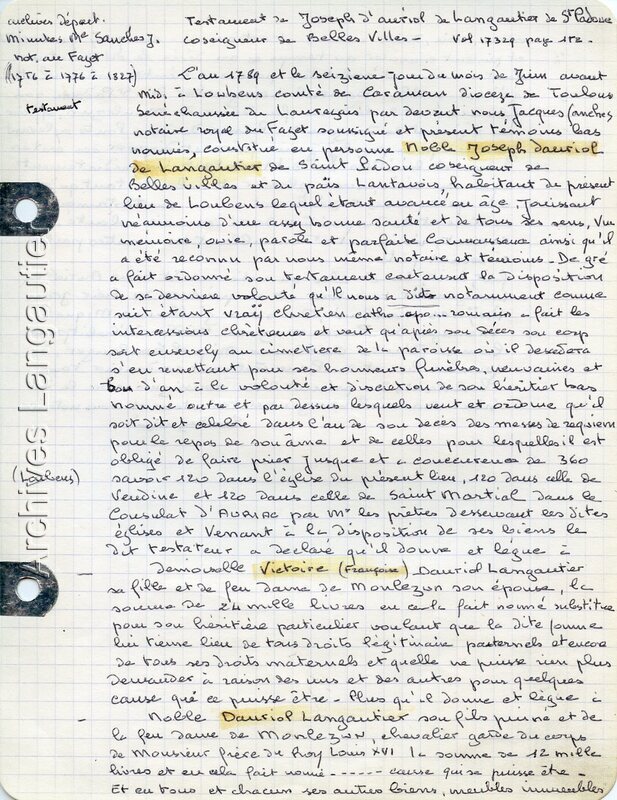 archives départ.
Minutes Me Sanchez J.
not. au Faget
(1756 à 1776 à 1827)
testament
Testament de Joseph d'auriol de Langautier de St Padoue
coseigneur de Belles Villes - Vol 17329 page 152 -
L'an 1789 et le seizieme jour du mois de Juin avant
midi à Loubens comté de Caraman dioceze de Toulouse
Sénéchaussée du Lauragais par devant nous Jacques Sanchez
notaire royal du Faget soussigné et présent témoins bas
nommés, constitué en personne Noble Joseph dauriol
de Langautier de Saint Padou coseigneur de
Belles villes et du païs Lantavois, habitant du présent
lieu de Loubens lequel étant avancé en âge Jouissant
néanmoins d'une assy bonne santé et de tous des sens, vue
mémoire, ouie, parole et parfaite connaissance ainsi qu'il
a été reconnu par nous même notaire et temoins - De gré
a fait ordonné son testament contenant la disposition
de sa derniere volonté qu'Il nous a dite notamment comme
suit étant vraÿ chretien catho..apo...romain a fait les
intercessions chrétiennes et veut qu'après son décès son corp
soit ensevely au cimetiere de la paroisse où il decedera
s'en remettant pour ses honneurs funèbres, neuvaines et
bou d'an à la volonté et discretion de son héritier bas
nommé outre et par dessus lesquels veut et ordonne qu'il
soit dit et celebré dans l'an de son deces des messes de requiem
pour le repos de son âme et de celles pour lesquelles il est
obligé de faire prier Jusque et a concurence de 360
savoir 120 dans l'église du présent lieu, 120 dans celle de
(Loubens)
Vendine et 120 dans celle de Saint Martial dans le
Consulat d'AURIAC par Mrs les prêtres desservant les dites
églises et Venant à la disposition de ses biens le
dit testateur a declaré qu'il donne et lègue à
- Demoiselle Victoire (Françoise) Dauriol Langautier
sa fille et de feu dame de Monlezun son épouse, la
somme de 24 mille livres en cela la fait nommé substitue
pour son héritière particulier voulant que la dite somme
lui tienne lieu de tous droits légitimaire paternels et encore
de tous ses droits maternels et quelle ne puisse rien plus
demander à raison des uns et des autres pour quelques
cause que ce puisse être - Plus qu'il donne et lègue à
- Noble Dauriol Langautier son fils puiné et de
la feu dame de Monlezun, chevalier garde du corps
de Monsieur frère du Roy Louis XVI la somme de 12 mille
livres et en cela fait nomé ----- cause qui se puisse être -
Et en tous et chacun ses autres biens, meubles immeubles
Archives Langautier